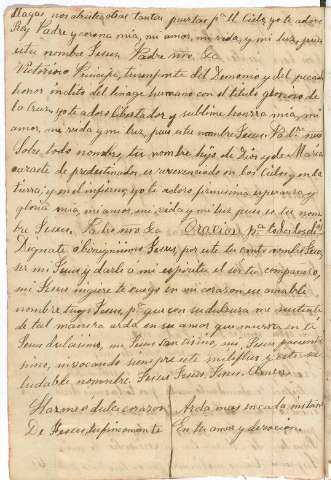 llagas nos abristes otras tantas puertas pª el Cielo yo te adoro
Rey Padre y corona mia, mi amor, mi vida, y mi luz, pues
este nombre Jesus. Padre nro. &a
Victorioso Principe, triunfante del Demonio y del pecado
honor inclito del linage humano con el titulo glorioso de
la Cruz, yo te adoro libertador y sublime honra mia, mi
amor, mi vida y mi luz, pues este nombre Jesus. Pa. nro
Sobre todo nombre, tu nombre hijo de Dios y de Maria
caracte de predestinados es reverenciado en los Cielos y en la
tierra, y en el infierno, yo te adoro primisima esperanza y
gloria mia, mi amor, mi vida y mi luz pues es tu nom
bre Jesus. Padre nro &a Oracion pª todos los dias
Dignate o benignisimo Jesus, por este tu santo nombre Jesus
ser mi Jesus y darle a mi espiritu el ser tu compañero,
mi Jesus ruego en mi corazon, su amable
nombre tuyo Jesus, pª que con su dulzura me sustente
de tal manera arda en su amor que muera en ti
Jesus dulcisimo, mi Jesus santisimo, mi Jesus pacientisi
simo, invocando siempre este melifluo y salu
ludable nomnbre Jesus Jesus, Jesus. Amen.
Harmed dulce corazon Arda mas en cada instante
De Jesus, tiernamante En tu amor y devocion.